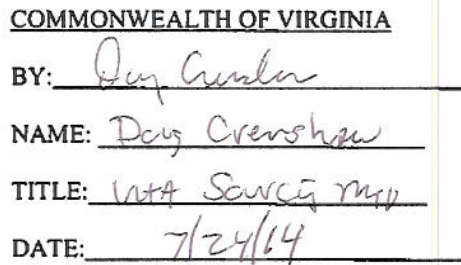 COMMONWEALTH OF VIRGINIA
BY: Doug Crenshaw
NAME: Doug Crenshaw
TITLE: VITA Sourcing Mgr
DATE: 7/24/14